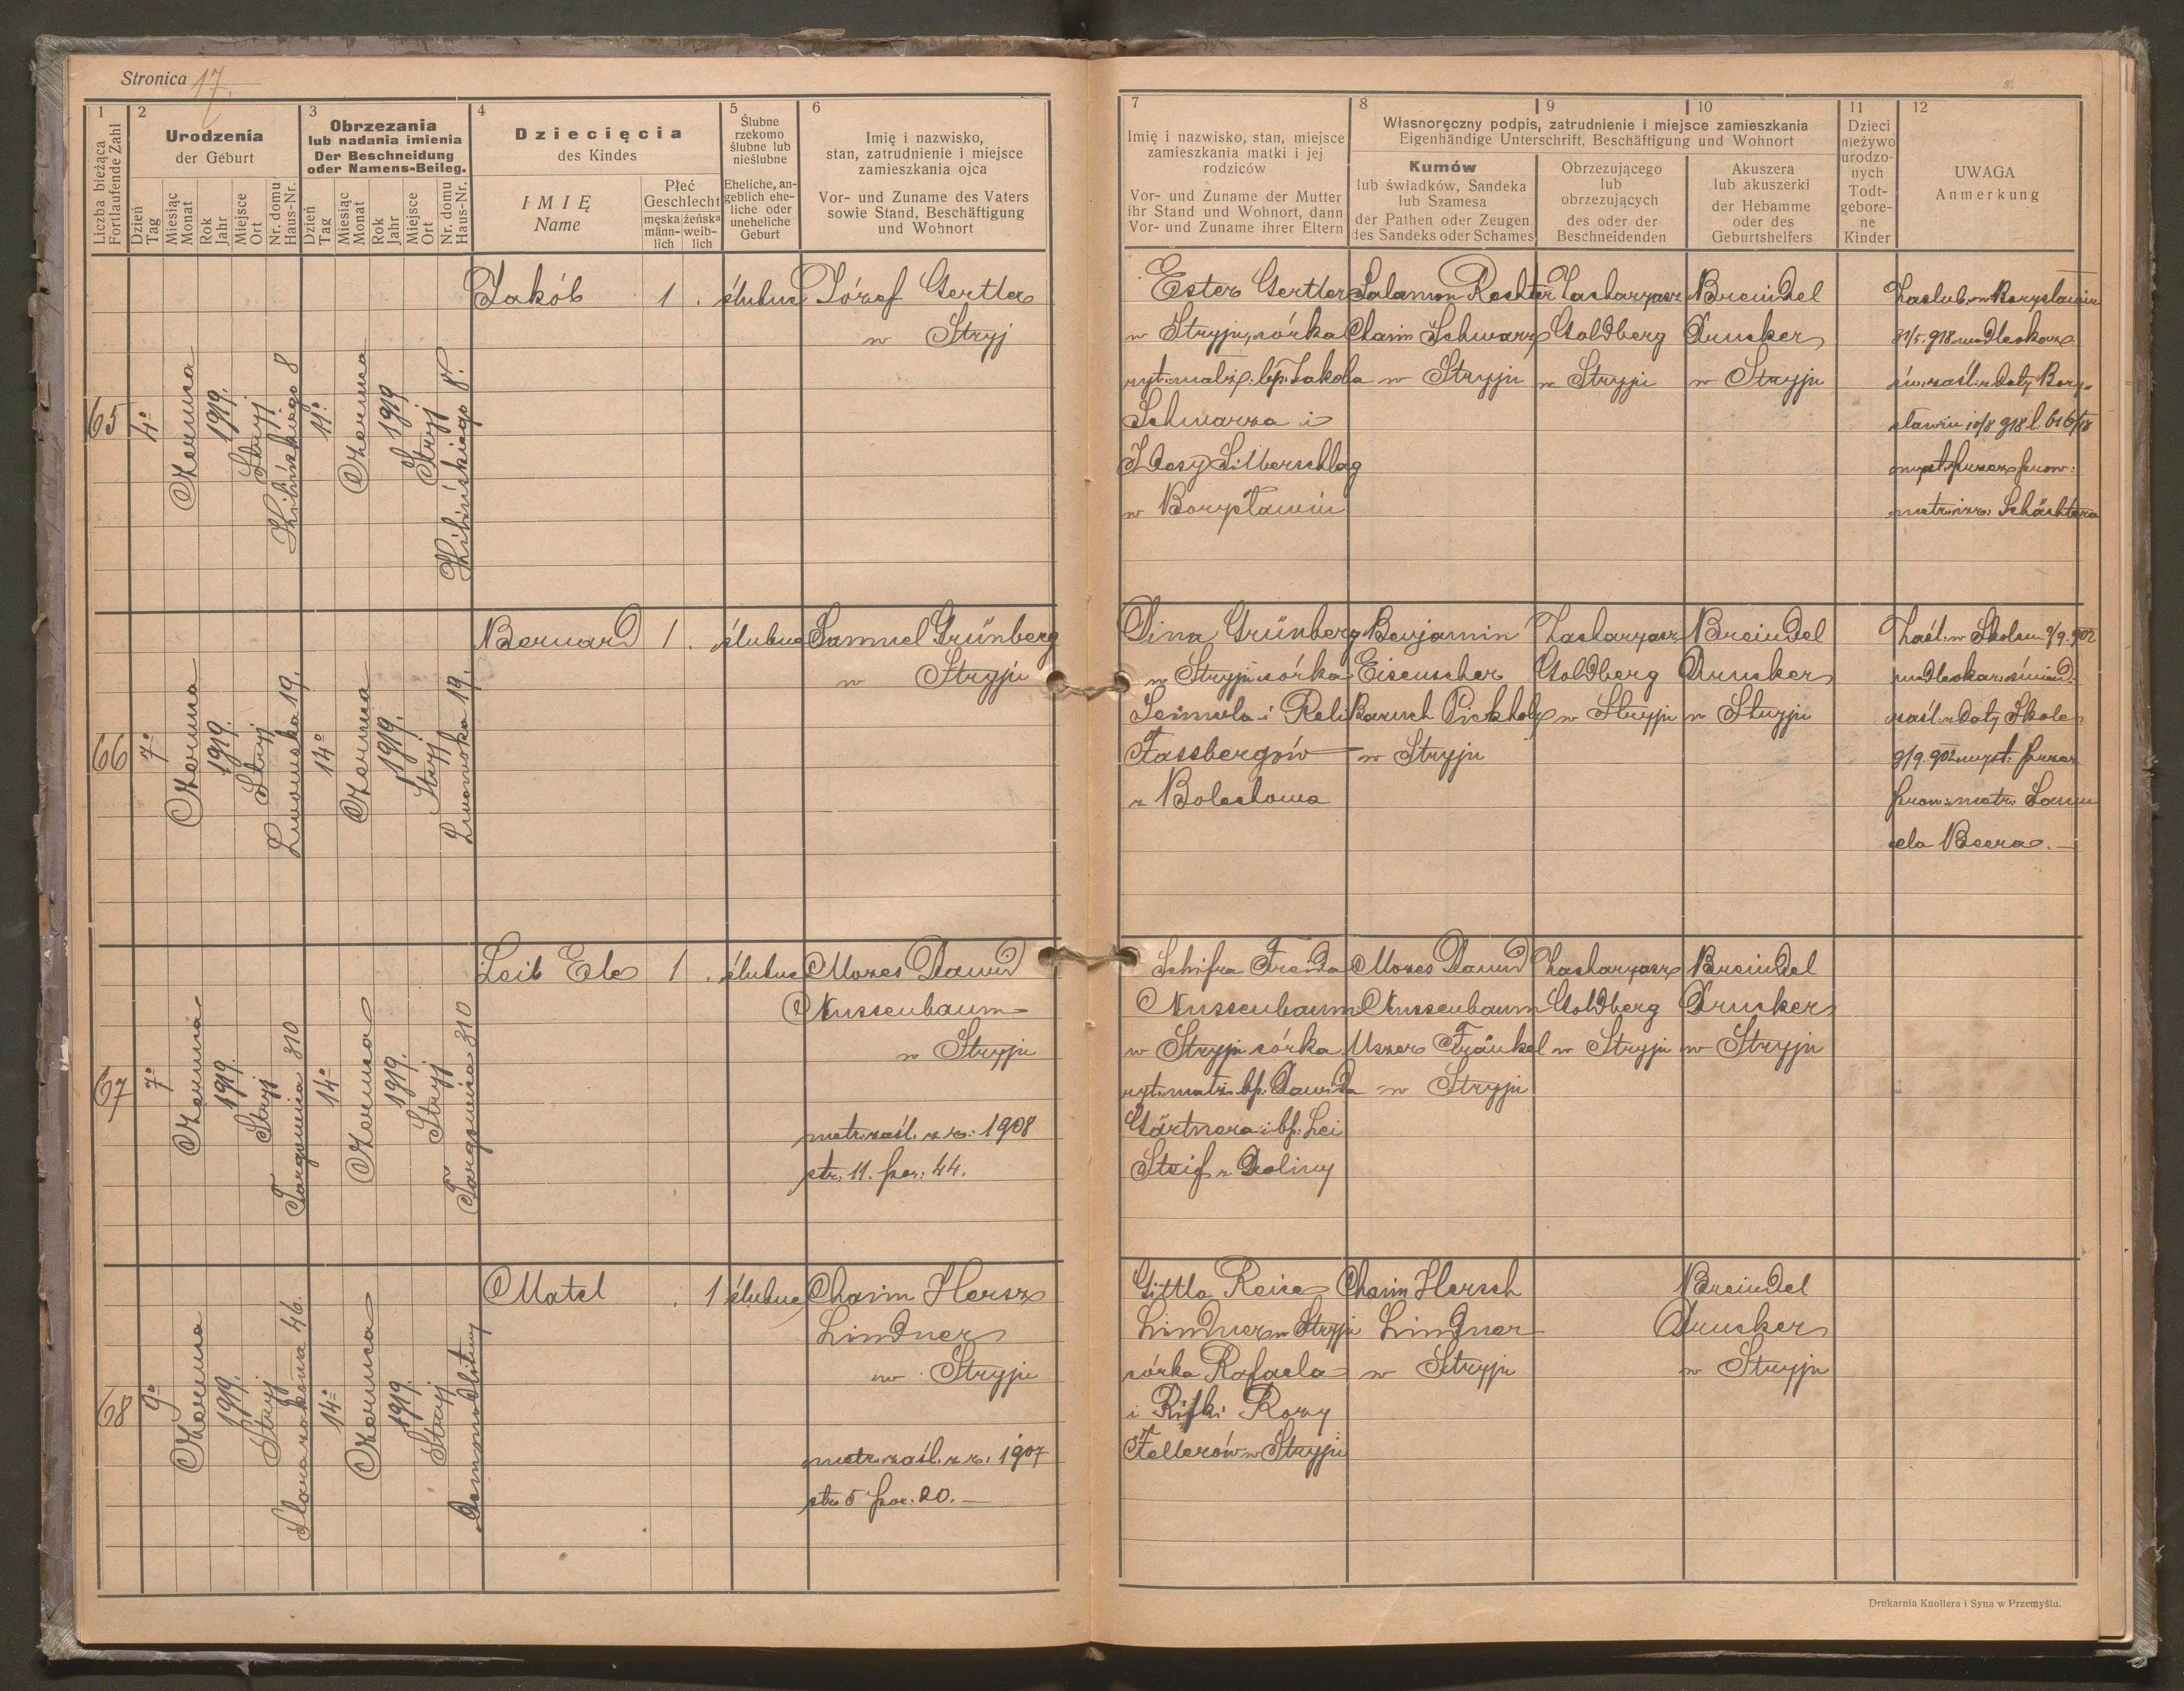 Stronica 17.
1
2
3
4
5
6
Liczba bieżąca
Fortlaufende Zahl
Urodzenia
der Geburt
Dzień
Tag
Miesiąc
Monat
Rok
Jahr
Miejsce
Ort
Nr. domu
Haus-Nr.
Obrzezania
lub nadania imienia
Der Beschneidung
oder Namens-Beileg.
Dzień
Tag
Miesiąc
Monat
Rok
Jahr
Miejsce
Ort
Nr. domu
Haus-Nr.
Dziecięcia
des Kindes
IMIĘ
Name
Płeć
Geschlecht
męska
männ-
lich
żeńska
weib-
lich
Ślubne
rzekomo
ślubne lub
nieślubne
Eheliche, an-
geblich ehe-
liche oder
uneheliche
Geburt
Imię i nazwisko,
stan, zatrudnienie i miejsce
zamieszkania ojca
Vor- und Zuname des Vaters
sowie Stand, Beschäftigung
und Wohnort
65
4º
Czerwca
1919.
Stryj
Kilińskiego 8
11º
Czerwca
1919
Stryj
Kilińskiego 8.
Jakób
1 .
ślubne
Józef Gertler
w Stryj
66
7º
Czerwca
1919.
Stryj
Lwowska 19.
14º
Czerwca
1919.
Stryj
Lwowska 19.
Bernard
1 .
ślubne
Samuel Grünberg
w Stryju
67
7º
Czerwca
1919.
Stryj
Targowica 310
14º
Czerwca
1919.
Stryj
Targowica 310
Leib Ele
1 .
ślubne
Mozes Dawid
Nussenbaum
w Stryju
metr. zaśl. z r. 1908
str. 11. poz. 44.
68
9º
Czerwca
1919.
Stryj
46.
14º
Czerwca
1919.
Stryj
Dom modlitwy
Matel
. 1
ślubne
Chaim Hersz
Lindner
w Stryju
metr. zaśl. z r. 1907
str. 5 poz. 20. —
7
8
9
10
11
12
Imię i nazwisko, stan, miejsce
zamieszkania matki i jej
rodziców
Vor- und Zuname der Mutter
ihr Stand und Wohnort, dann
Vor- und Zuname ihrer Eltern
Własnoręczny podpis, zatrudnienie i miejsce zamieszkania
Eigenhändige Unterschrift, Beschäftigung und Wohnort
Kumów
lub świadków, Sandeka
lub Szamesa
der Pathen oder Zeugen
des Sandeks oder Schames
Obrzezującego
lub
obrzezujących
des oder der
Beschneidenden
Akuszera
lub akuszerki
der Hebamme
oder des
Geburtshelfers
Dzieci
nieżywo
urodzo-
nych
Todt-
gebore-
ne
Kinder
UWAGA
Anmerkung
Ester Gertler
w Stryju, córka
ryt. małż. bp. Jakoba
Schwarza i
Idesy Silberschlag
w Borysławiu
Salamon Rechter
Chaim Schwarz
w Stryju
Zacharyasz
Goldberg
w Stryju
Breindel
Drucker
w Stryju
Zaślub. w Borysławiu
31/5. 918 wedle okaz.
św. zaśl. z daty Bory-
sławiu 10/8 918 l. 616/18
wyst. przez prow.
metr. izr. Schächtera
Dina Grünberg
w Stryju córka
Seinwela i Reli
Fassbergów
z Bolechowa
Benjamin
Eisenscher
Baruch Pickholz
w Stryju
Zacharyasz
Goldberg
w Stryju
Breindel
Drucker
w Stryju
Zaśl. w Skolem 9/9. 902
wedle okaz. świad.
zaśl. z daty Skole
9/9. 902 wyst. przez
prow. metr. Samu
ela Beera. —
Schifra Freida
Nussenbaum
w Stryju córka
ryt. małż. bp. Dawida
Gärtnera i bp. Lei
Steif z Doliny
Mozes Dawid
Nussenbaum
Uszer Fränkel
w Stryju
Zacharyasz
Goldberg
w Stryju
Breindel
Drucker
w Stryju
Gittla Reise
Lindner w Stryju
córka Rafaela
i Rifki Rozy
Fellerów w Stryju
Chaim Hersch
Lindner
w Stryju
Breindel
Drucker
w Stryju
Drukarnia Knollera i Syna w Przemyślu.